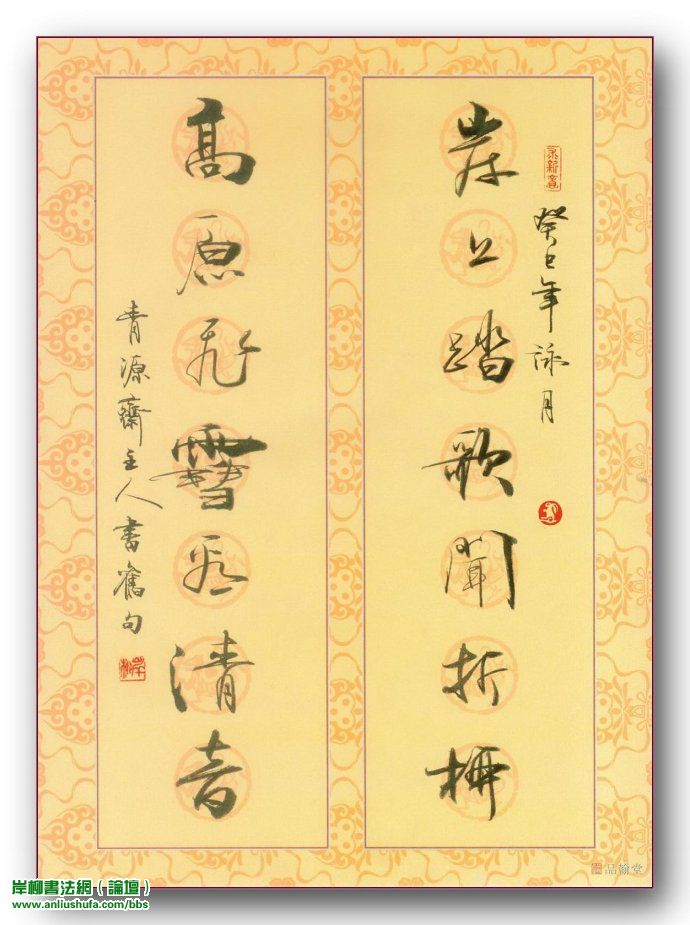 癸巳年詠月
岸上踏歌聞折柳
高原飛雪清音
青源齋主人書舊句
岸柳
品翰堂
岸柳書法網（論壇）
www.anliushufa.com/bbs